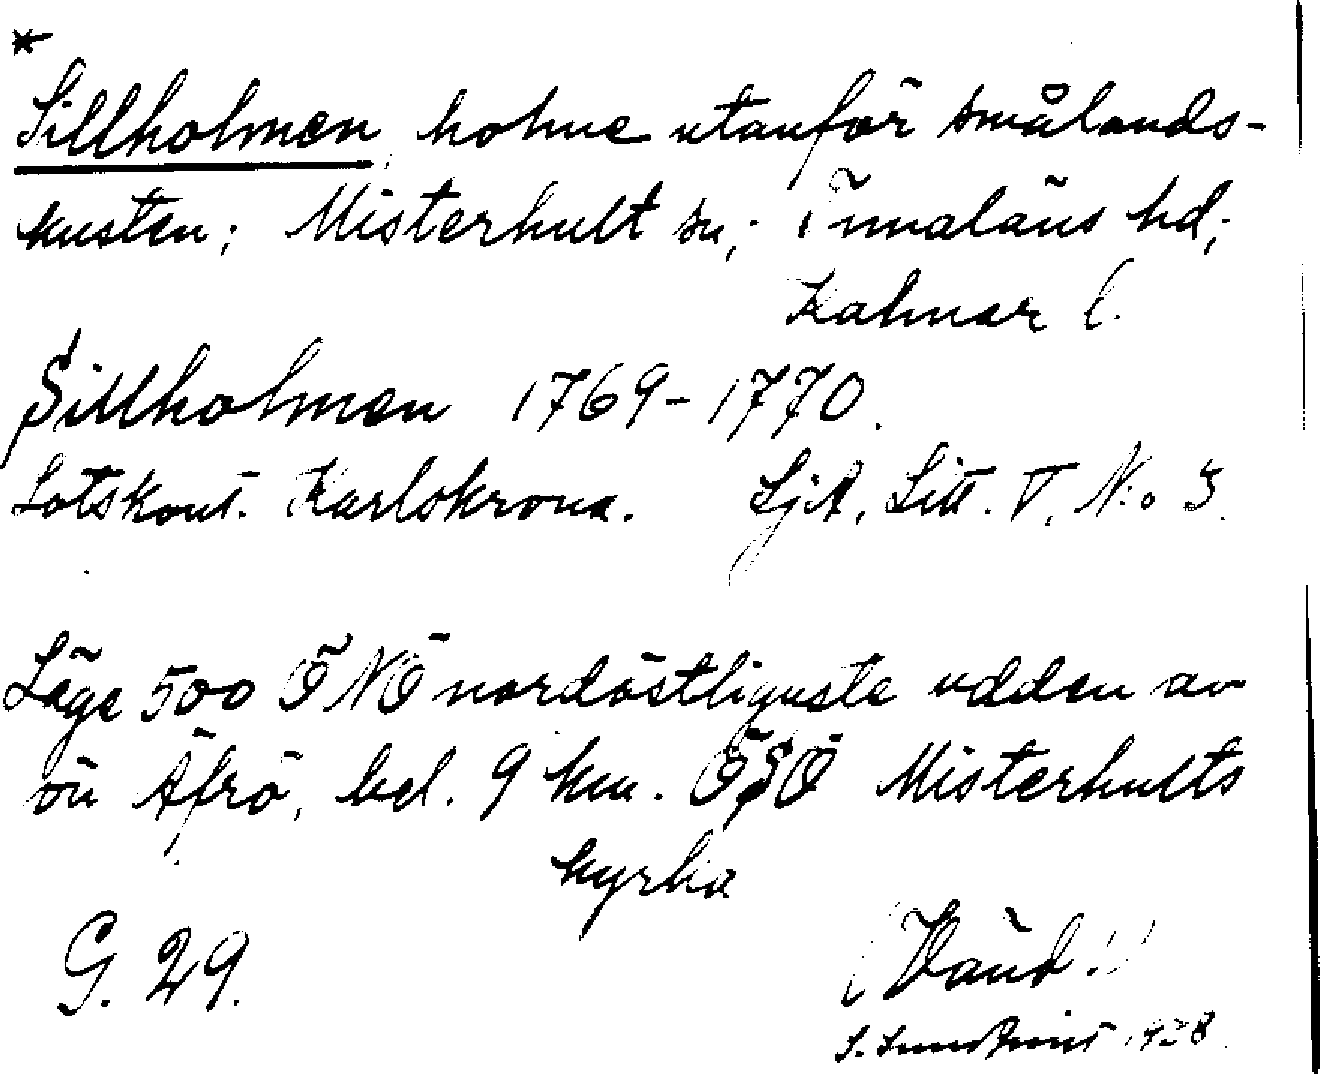 *
Sillholmen, holme utanför smålands-
kusten; Misterhult sn; Tunaläns hd;
Kalmar l.
Sillholmen 1769-1770.
Lotskont. Karlskrona. SjA. Litt. V. N:o 3.
Läge 500 ÖNÖ nordöstligaste udden av
ön Äfrö, bel. 9 km. ÖSÖ Misterhults
kyrka
G. 29.
(Vänd!)
S. 1928.